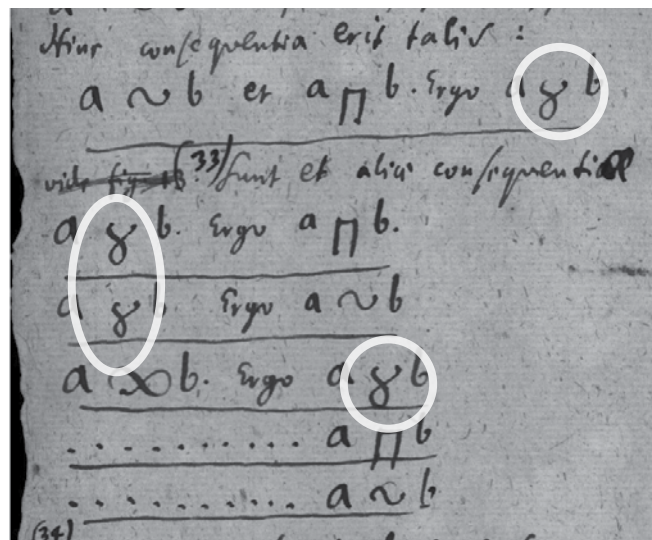 Hinc consequentia erit talis :
a ~ b et a ⊓ b. Ergo a ɣ b
vide fig (33) Sunt et aliae consequentiae
a ɣ b. Ergo a ⊓ b.
a ɣ b Ergo a ~ b
a ∞ b. Ergo a ɣ b
. . . . . . . . . . a ⊓ b
. . . . . . . . . . a ~ b
(34)